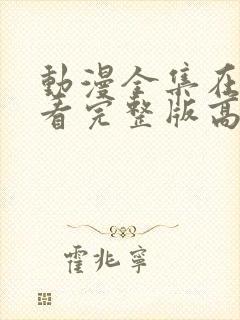 動漫全集在
看完整版高
霍兆寧